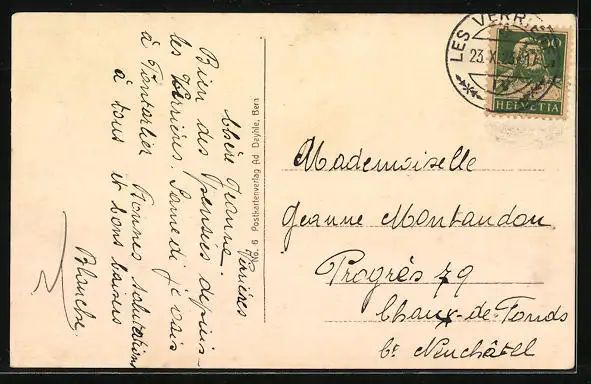 Verrières
Chère Jeanne.
Bien des pensées depuis
les Verrières. Samedi je vais
à Pontarlier Bonnes salutations
à tous et bons baisers
Blanche.
No. 6 Postkartenverlag Ad Deyhle, Bern
LES VERRIÈRES
23.X.
HELVETIA
Mademoiselle
Jeanne Montandon
Progrès 79
Chaux-de-Fonds
Ct Neuchâtel